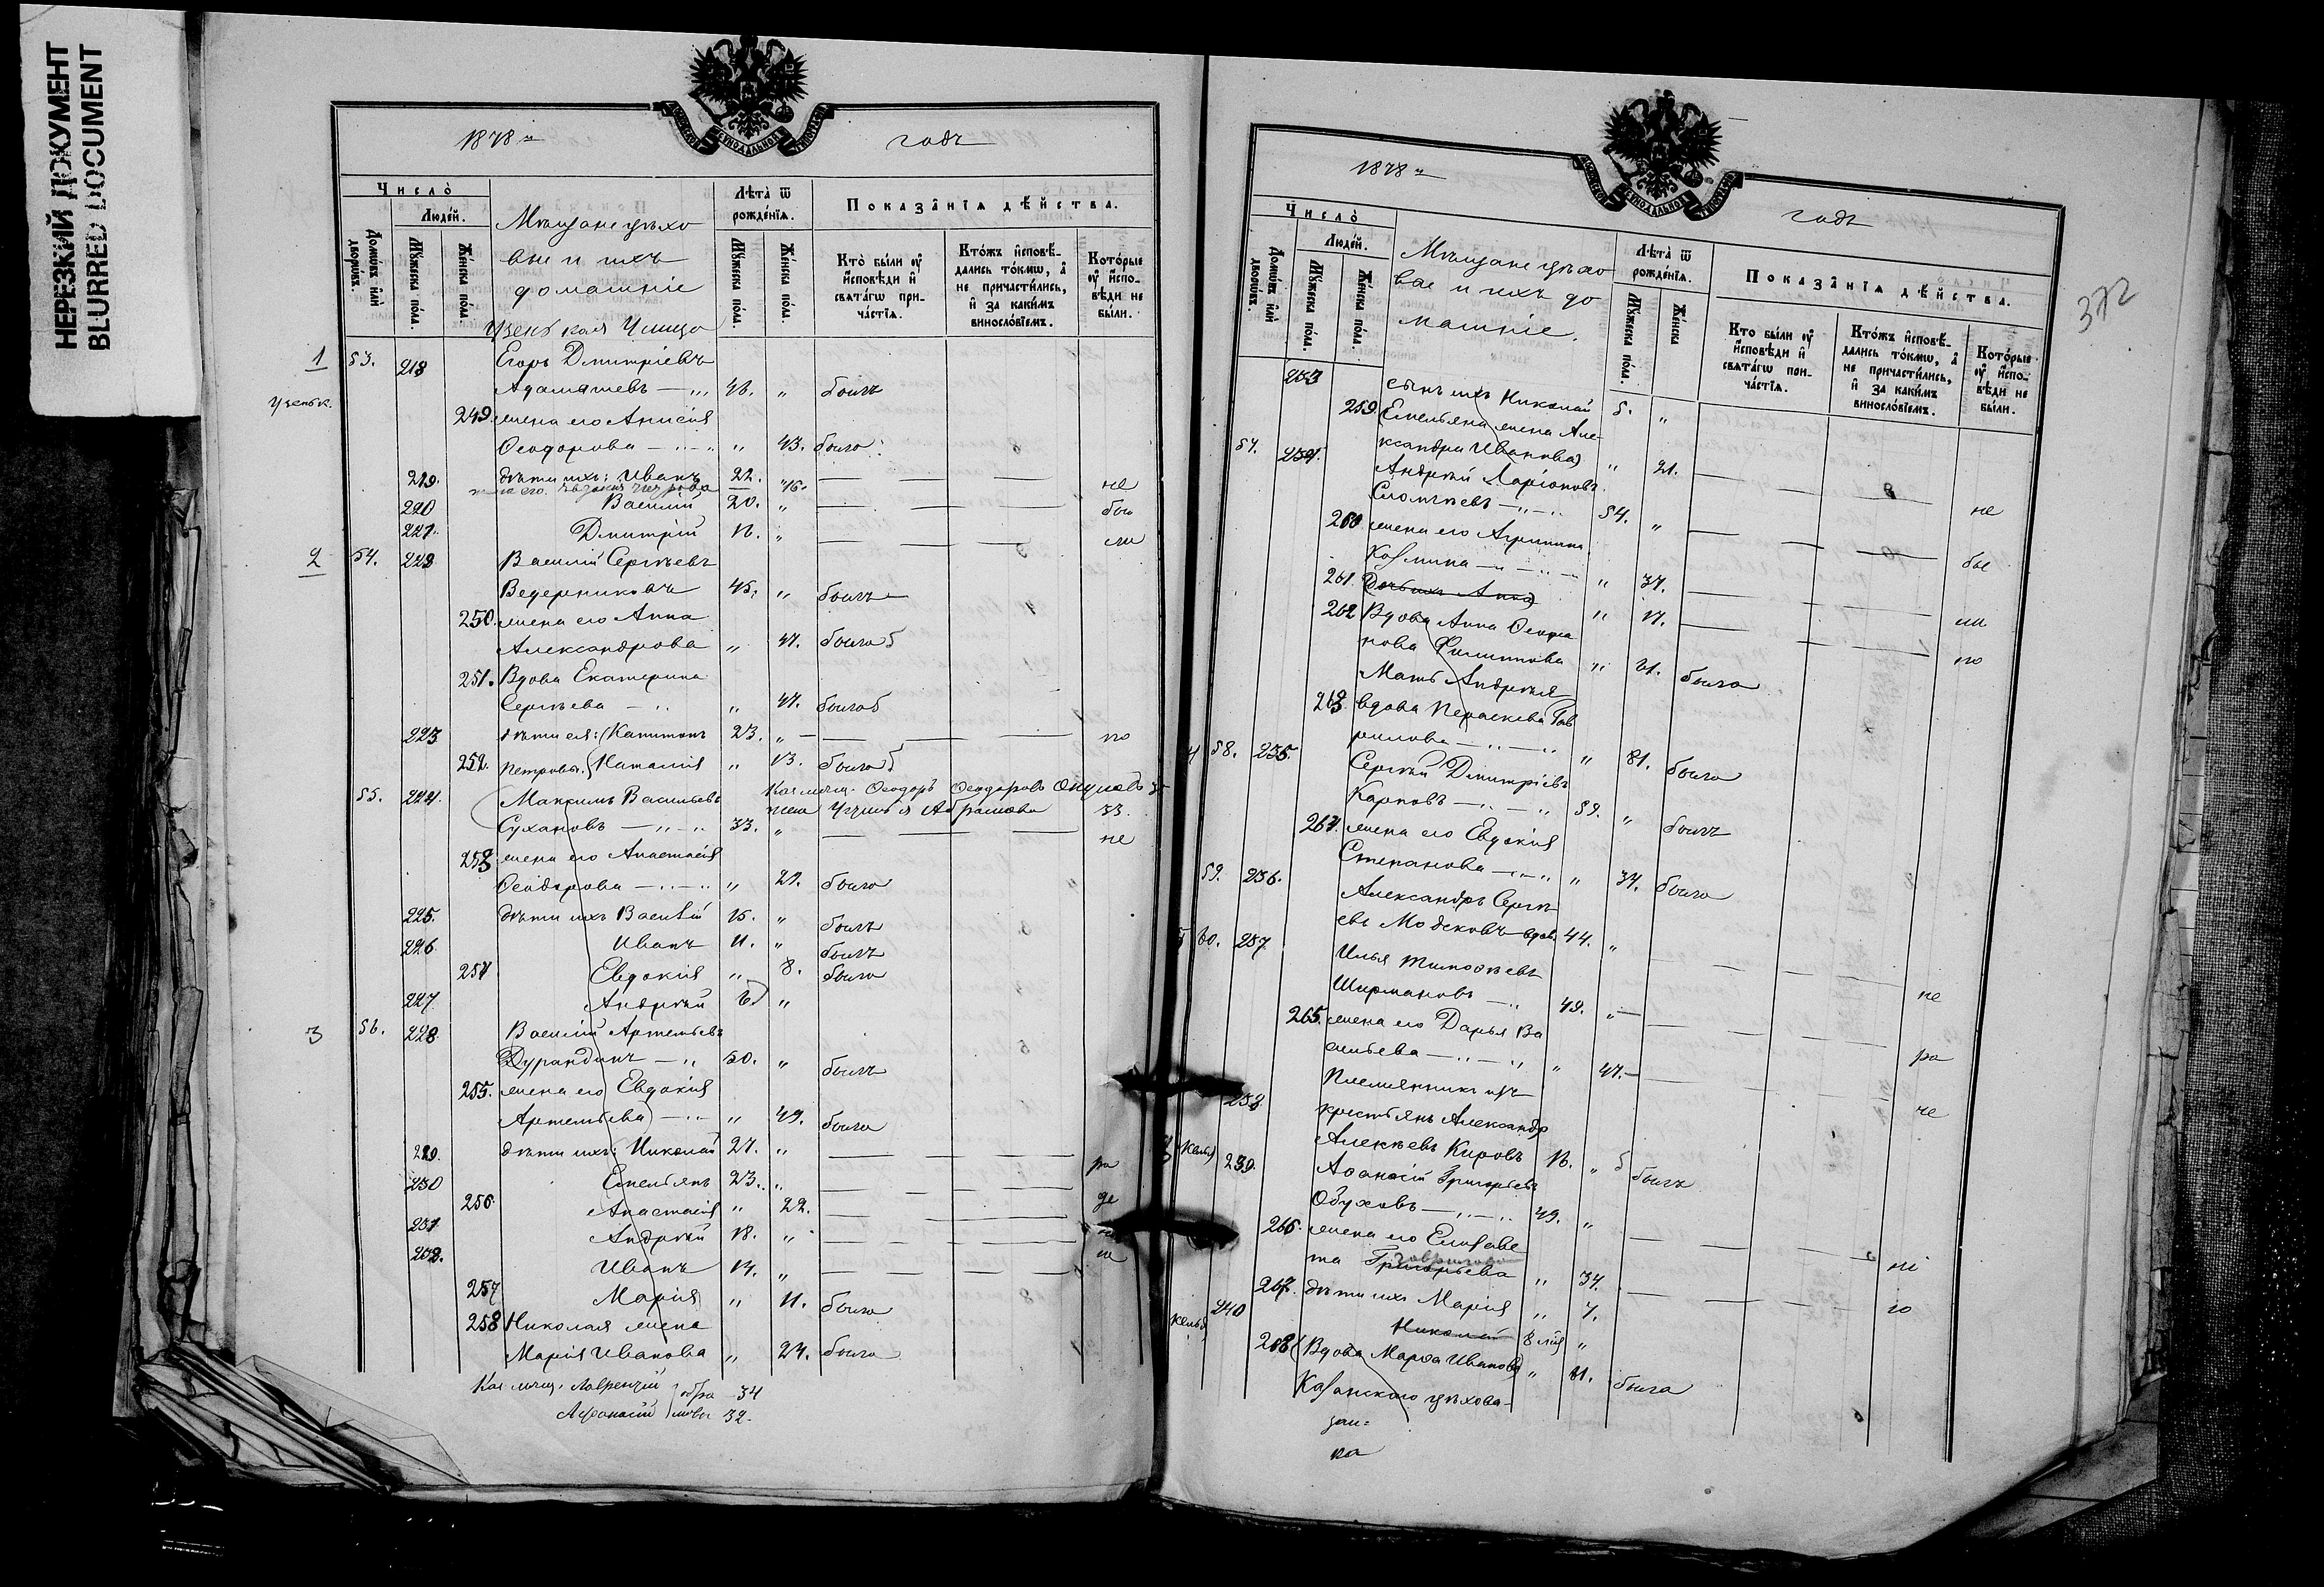 НЕРЕЗКИЙ ДОКУМЕНТ
BLURRED DOCUMENT
1878 годъ
Число̀
Люде́й.
Домѡ́въ и҆лѝ дворѡ́въ.
Мꙋ́жеска по́ла.
Же́нска по́ла.
Мѣщане цѣхо
вые и ихъ
домашніе
Лѣта̀ ѿ рожде́нїѧ.
Мꙋ́жеска по́ла.
Же́нска по́ла.
Показа̂нїѧ дѣ́йства.
Кто̀ бы́ли ᲂу҆ и҆́сповѣди и҆ свѧта́гѡ причастїѧ.
Кто́жъ и҆сповѣ́дались то́кмѡ, а҆ не причасти́лись, и҆ за каки́мъ виносло́вїемъ.
Кото́рые ᲂу҆ и҆́сповѣди не бы́ли.
Улица
1 53. 218 Егоръ Дмитріевъ
Адамашевъ 46. " былъ
249. жена его Анисія
Ѳеодорова " 43. была
219. дѣти ихъ: Иванъ 22. не
220 Василій 20. " бы
221. Дмитрій 16. " ли
2 54. 222 Василій Сергѣевъ
Ведерниковъ 45. " былъ
250. жена его Анна
Александрова " 47. была
251. Вдова Екатерина
Сергѣева " 47. была
223 дѣти ея: Капитонъ 23. " по
252. Петровы. Наталія " 13. была
55. 224. Максимъ Васильевъ Ѳеодоръ Ѳеодоровъ
Сухановъ 33. " Абрамова 33.
не
253 жена его Анастасія
Ѳеодорова " 29. была
225. дѣти ихъ Василій 15. " былъ
226. Иванъ 11. " былъ
254 Евдокія " 8. была
227 Андрей 6 "
3 56. 228 Василій Артемьевъ
Дурандинъ 50. " былъ
255. жена его Евдокія
Артемьева " 49. была
229. дѣти ихъ: Николай 27. " ра
230 Емельянъ 23. " де
256 Анастасія " 22.
231 Андрей 18. "
232. Иванъ 14. "
257 Марія " 11. была
258 Николая жена
Марія Иванова " 24. была
Лаврентій 34
Афанасій 32.
1878 годъ
372
Число̀
Люде́й.
Домѡ́въ и҆лѝ дворѡ́въ.
Мꙋ́жеска по́ла.
Же́нска по́ла.
Мѣщане цѣхо
вые и ихъ до
машніе.
Лѣта̀ ѿ рожде́нїѧ.
Мꙋ́жеска по́ла.
Же́нска
Показа̂нїѧ дѣ́йства.
Кто̀ бы́ли ᲂу҆ и҆́сповѣди и҆ свѧта́гѡ причастїѧ.
Кто́жъ и҆сповѣ́дались то́кмѡ, а҆ не причасти́лись, и҆ за каки́мъ виносло́вїемъ.
Кото́рые ᲂу҆ и҆́сповѣди не бы́ли.
233 сынъ ихъ Николай 5. "
259. Емельяна жена Але-
ксандра Иванова " 21. не
57. 234. Андрей Ларіоновъ
54. " бы
260. жена его Агрипина
Козмина " 37. ли
261. Дочь ихъ Анна " 17. по
262 Вдова Анна
Филиппова " 61. была
Мать Андрея
263. вдова Параскева Гав
рилова " 81. была
4 58. 235. Сергѣй Дмитріевъ
Карповъ 39. " былъ
264. жена его Евдокія
Степанова " 34. была
59. 236. Александръ Сергѣ
евъ вдов. 44. " не
5 60. 237. Илья Тимоѳеевъ
Ширмановъ 49. " ра
265. жена его Дарья Ва
сильева " 47. че
238 Племянникъ изъ
крестьянъ Александръ
Алексѣевъ Кировъ 16. " былъ
239. Аѳанасій Григорьевъ
Обуховъ 49. " ні
266. жена его Елизаве
та Григорьева " 34. ю
267. дѣти ихъ Марія " 7.
240 Николай "
268 Вдова Марѳа Иванова " 61. была
Казанскаго цѣхова-